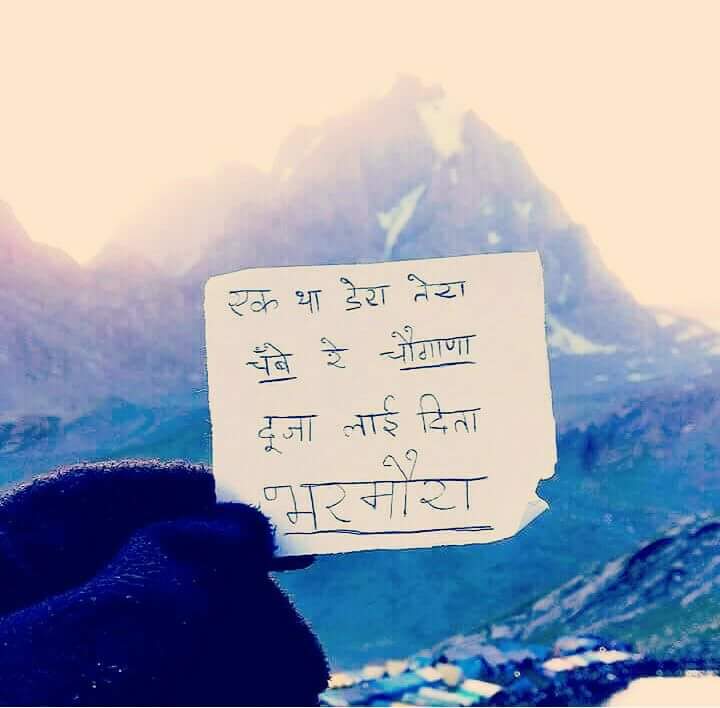 एक था डेरा तेरा
चँबे रे चौगाणा
दूजा लाई दिता
भरमौरा